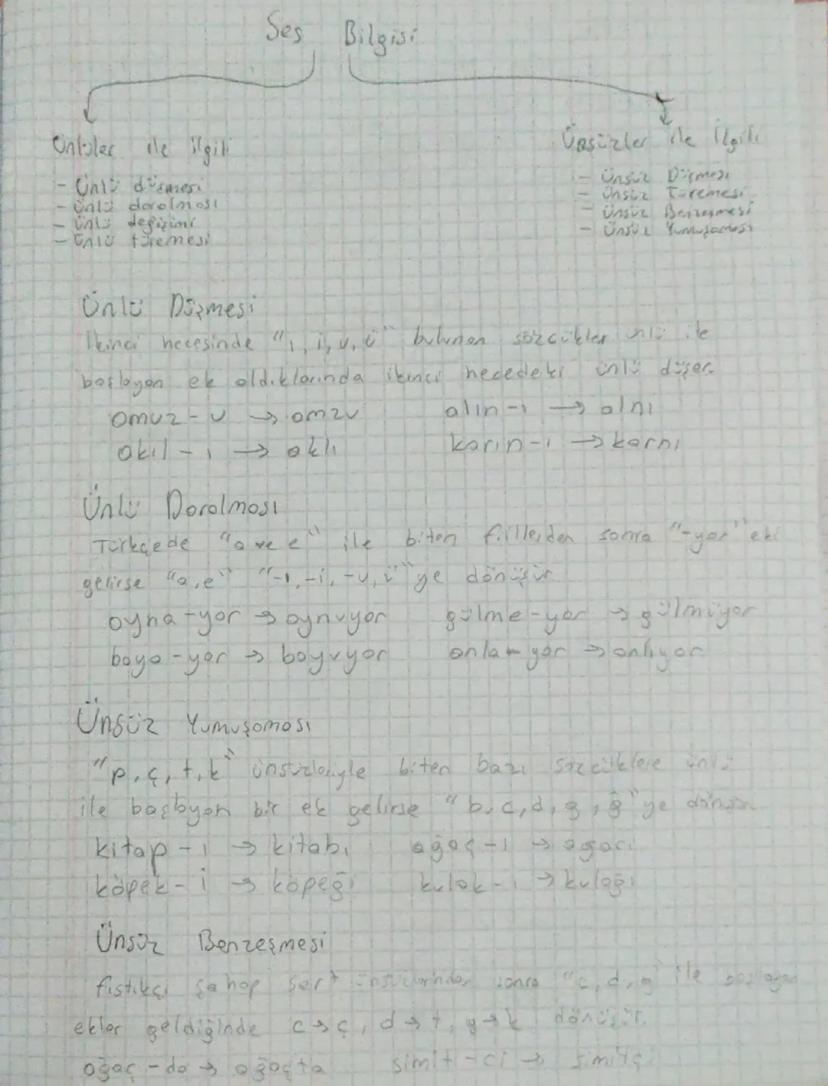 Ses Bilgisi
Ünlüler ile ilgili
- Ünlü düşmesi
- ünlü daralması
- ünlü değişimi
- ünlü türemesi
Ünsüzler ile İlgili
- Ünsüz Düşmesi
- Ünsüz Türemesi
- Ünsüz Benzeşmesi
- Ünsüz Yumuşaması
Ünlü Düşmesi
İkinci hecesinde "ı, i, u, ü" bulunan sözcükler ünlü ile
başlayan ek aldıklarında ikinci hecedeki ünlü düşer.
omuz-u → omzu alın-ı → alnı
akıl-ı → aklı karın-ı → karnı
Ünlü Daralması
Türkçede "a ve e" ile biten fiillerden sonra "-yor" eki
gelirse "a, e" "-ı, -i, -u, ü"ye dönüşür
oyna-yor → oynuyor gülme-yor → gülmüyor
boya-yor → boyuyor anla-yor → anlıyor
Ünsüz Yumuşaması
"p, ç, t, k" ünsüzleriyle biten bazı sözcüklere ünlü
ile başlayan bir ek gelirse "b, c, d, g, ğ"ye dönüşür
kitap-ı → kitabı ağaç-ı → ağacı
köpek-i → köpeği kulak-ı → kulağı
Ünsüz Benzeşmesi
fıstıkçı şahap sert ünsüzlerinden sonra "c, d, g" ile başlayan
ekler geldiğinde c→ç, d→t, g→k dönüşür.
ağaç-da → ağaçta simit-ci → simitçi